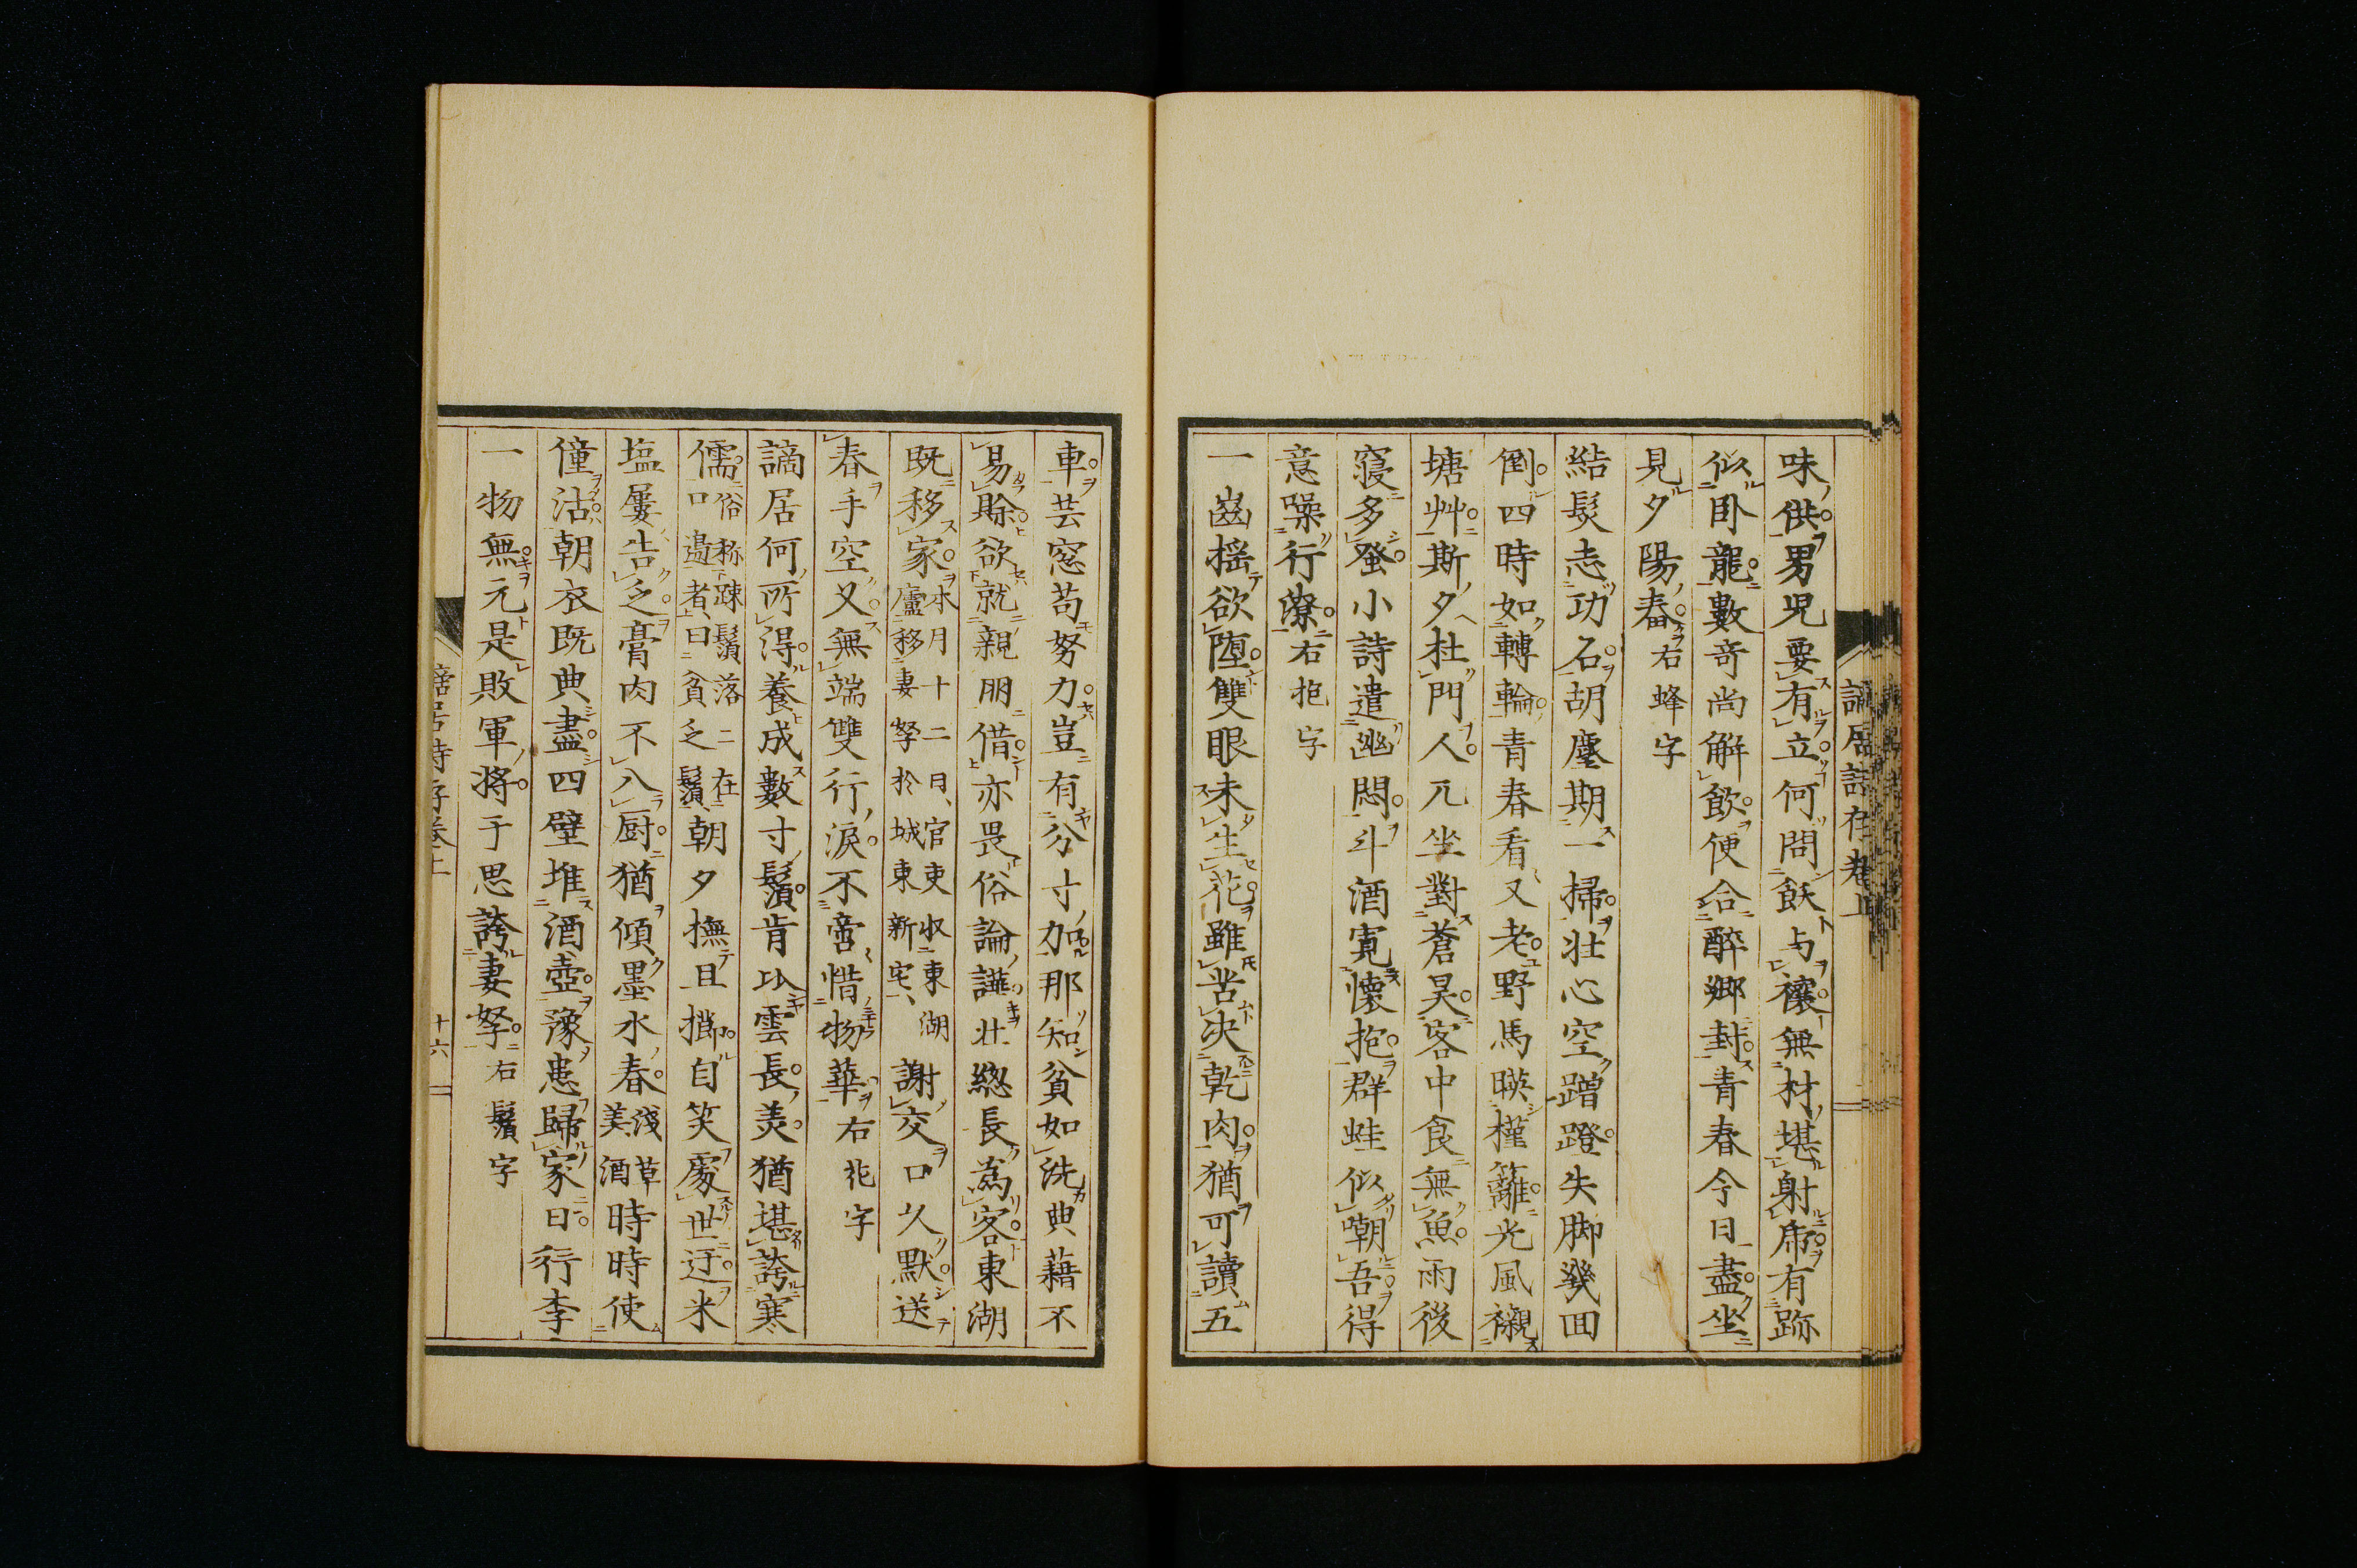 味供男児要有立何問飫与穰無材堪射席有跡
似臥龍數奇尚解飲便合醉鄉封青春今日盡坐
見夕陽舂右蜂字
結髮志功石胡塵期一掃壯心空蹭蹬失脚幾回
倒四時如轉輪青春看又老野馬暎槿籬光風襯
塘艸斯夕杜門人兀坐對蒼昊客中食無魚雨後
寢多蚤小詩遣幽悶斗酒寬懷抱群蛙似嘲吾得
意躁行潦右抱字
一齒搖欲墮雙眼未生花雖苦决乾肉猶可讀五
車芸窓苟努力豈有分寸加那知貧如洗典藉不
易賖欲就親朋借亦畏俗論譁壯緦長為客東湖
既移家本月十二日、官吏收東湖廬移妻孥於城東新宅、謝交口久默送
春手空叉無端雙行淚不啻惜物華右花字
謫居何所得養成數寸鬚肯以雲長羨猶堪誇寒
儒俗称疎鬚落二在口邉者、曰貧乏鬚、朝夕撫且擲自笑處世迂米
塩屢告乏膏肉不入厨猶傾墨水春淺草美酒時時使
僮沽朝衣既典盡四壁堆酒壺豫患歸家日行李
一物無元是敗軍将于思誇妻孥右鬚字
謫居詩存卷上 十六